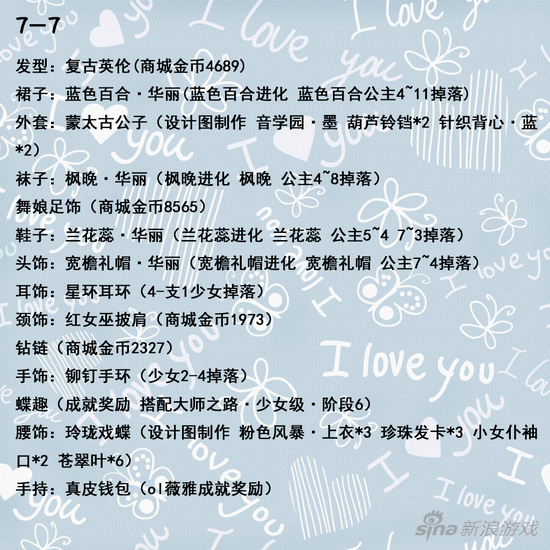 7—7
发型：复古英伦(商城金币4689)
裙子：蓝色百合·华丽(蓝色百合进化 蓝色百合公主4~11掉落)
外套：蒙太古公子（设计图制作 音学园·墨 葫芦铃铛*2 针织背心·蓝
*2）
袜子：枫晚·华丽（枫晚进化 枫晚 公主4~8掉落）
舞娘足饰（商城金币8565）
鞋子：兰花蕊·华丽（兰花蕊进化 兰花蕊 公主5~4 7~3掉落）
头饰：宽檐礼帽·华丽（宽檐礼帽进化 宽檐礼帽 公主7~4掉落）
耳饰：星环耳环（4-支1少女掉落）
颈饰：红女巫披肩（商城金币1973）
钻链（商城金币2327）
手饰：铆钉手环（少女2-4掉落）
蝶趣（成就奖励 搭配大师之路·少女级·阶段6）
腰饰：玲珑戏蝶（设计图制作 粉色风暴·上衣*3 珍珠发卡*3 小女仆袖
口*2 苍翠叶*6）
手持：真皮钱包（ol薇雅成就奖励）
I love you
I love you
I love you
sina新浪游戏